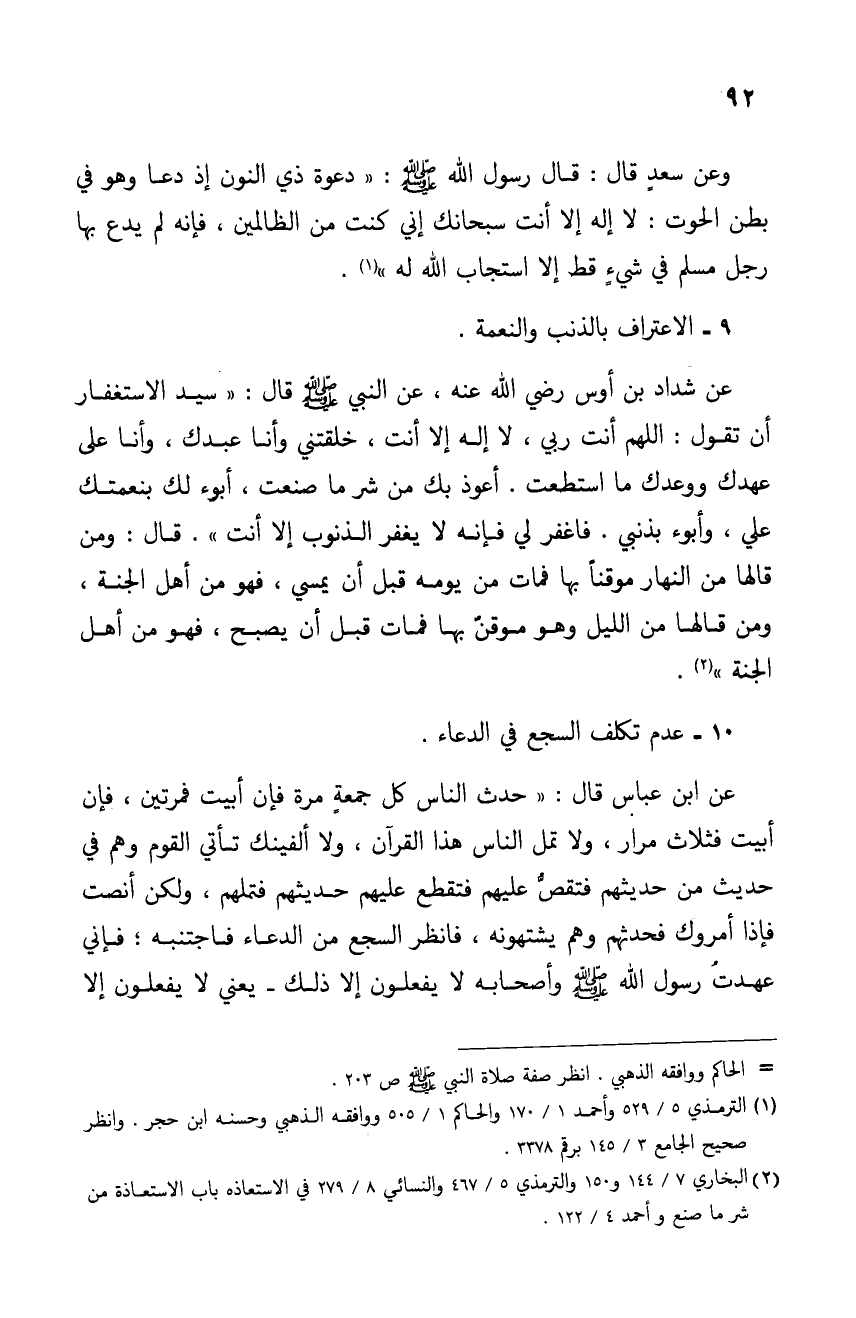 ٩٢
وعن سعدٍ قال : قـال رسول الله ﷺ : « دعوة ذي النون إذ دعـا وهو في
بطن الحوت : لا إله إلا أنت سبحانك إني كنت من الظالمين ، فإنه لم يدع بها
رجل مسلم في شيءٍ قط إلا استجاب الله له »(١) .
٩ ـ الاعتراف بالذنب والنعمة .
عن شداد بن أوس رضي الله عنه ، عن النبي ﷺ قال : « سيـد الاستغفـار
أن تقـول : اللهم أنت ربي ، لا إلـه إلا أنت ، خلقتني وأنـا عبـدك ، وأنـا على
عهدك ووعدك ما استطعت . أعوذ بك من شر ما صنعت ، أبوء لك بنعمتـك
علي ، وأبوء بذنبي . فاغفر لي فـإنـه لا يغفر الـذنوب إلا أنت » . قـال : ومن
قالها من النهار موقناً بها فمات من يومـه قبل أن يمسي ، فهو من أهل الجنـة ،
ومن قـالهـا من الليل وهـو مـوقنٌ بهـا فمـات قبـل أن يصبـح ، فهـو من أهـل
الجنة »(٢) .
١٠ ـ عدم تكلف السجع في الدعاء .
عن ابن عباس قال : « حدث الناس كل جمعةٍ مرة فإن أبيت فمرتين ، فإن
أبيت فثلاث مرار ، ولا تمل الناس هذا القرآن ، ولا ألفينك تـأتي القوم وهم في
حديث من حديثهم فتقصُّ عليهم فتقطع عليهم حـديثهم فتملهم ، ولكن أنصت
فإذا أمروك فحدثهم وهم يشتهونه ، فانظر السجع من الدعـاء فـاجتنبـه ؛ فـإني
عهـدتُ رسول الله ﷺ وأصحـابـه لا يفعلـون إلا ذلـك ـ يعني لا يفعلـون إلا
= الحاكم ووافقه الذهبي . انظر صفة صلاة النبي ﷺ ص ٢٠٣ .
(١) الترمـذي ٥ / ٥٢٩ وأحمـد ١ / ١٧٠ والحـاكم ١ / ٥٠٥ ووافقـه الـذهبي وحسنـه ابن حجر . وانظر
صحيح الجامع ٣ / ١٤٥ برقم ٣٣٧٨ .
(٢) البخاري ٧ / ١٤٤ و١٥٠ والترمذي ٥ / ٤٦٧ والنسائي ٨ / ٢٧٩ في الاستعاذه باب الاستعـاذة من
شر ما صنع و أحمد ٤ / ١٢٢ .